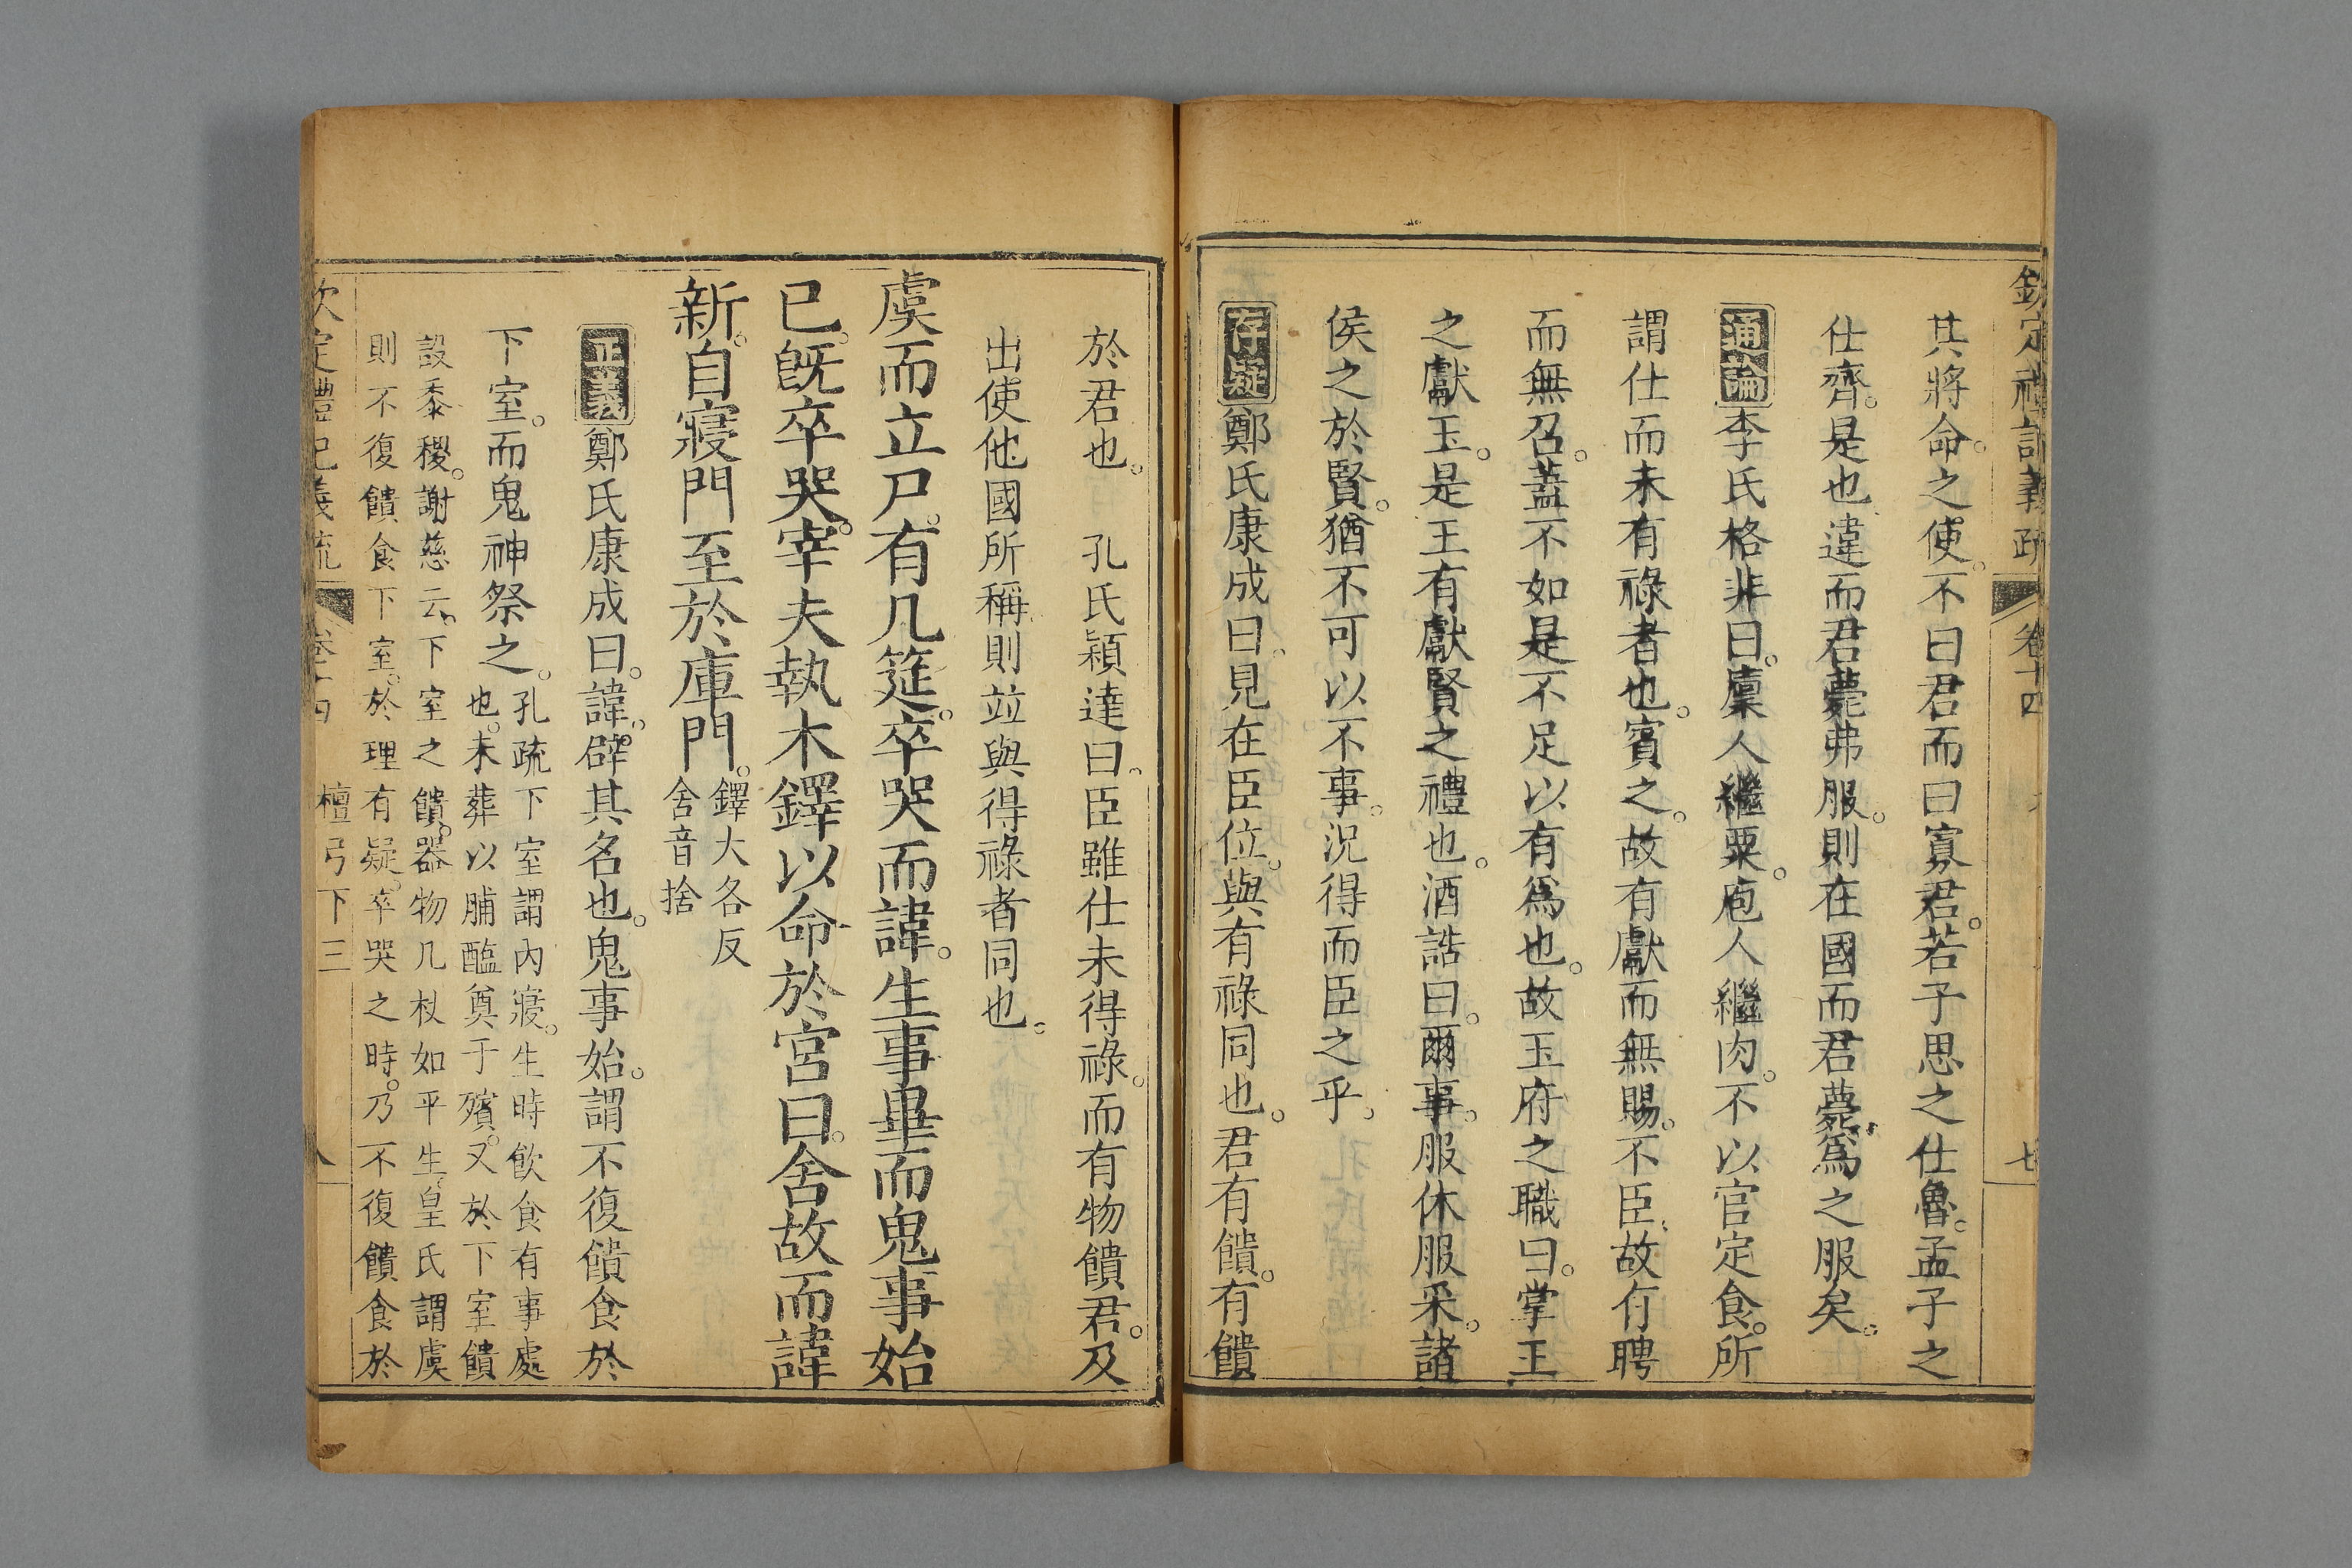 欽定禮記義疏 卷十四 七
其將命。之使。不曰君而曰寡君。若子思之仕魯。孟子之
仕齊。是也違而君薨弗服。則在國而君薨。爲之服矣。
通論李氏格非曰。廩人繼粟。庖人繼肉。不以官定食。所
謂仕而未有祿者也。賓之。故有獻而無賜。不臣。故有聘
而無召。蓋不如是不足以有爲也。故玉府之職曰。掌王
之獻玉。是王有獻賢之禮也。酒誥曰。爾事。服休服采。諸
侯之於賢。猶不可以不事。況得而臣之乎。
存疑鄭氏康成曰。見在臣位。與有祿同也。君有饋。有饋
於君也。 孔氏穎達曰。臣雖仕未得祿。而有物饋君。及
出使他國所稱則並與得祿者同也。
虞而立尸。有几筵。卒哭而諱。生事畢而鬼事始
已。既卒哭。宰夫執木鐸以命於宮曰。舍故而諱
新。自寢門至於庫門。
鐸大各反
舍音捨
正義鄭氏康成曰。諱。辟其名也。鬼事始。謂不復饋食於
下室。而鬼神祭之。
孔疏下室謂內寢。生時飲食有事處
也。未葬以脯醢奠于殯。又於下室饋
設黍稷。謝慈云。下室之饋。器物几杖如平生。皇氏謂虞
則不復饋食下室。於理有疑。卒哭之時。乃不復饋食於
欽定禮記義疏 卷十四 檀弓下三 八